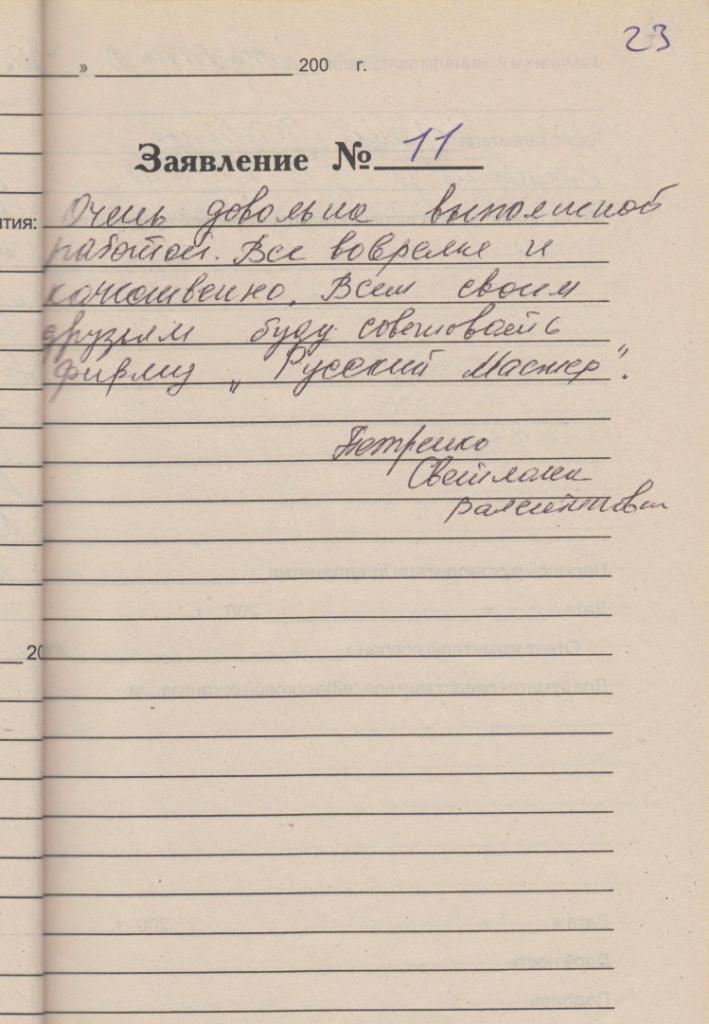 23
» 200 г.
Заявление № 11
тия:
Очень довольна выполненой
работой. Все вовремя и
качественно. Всем своим
друзьям буду советовать
фирму „Русский Мастер".
Петренко
Светлана
Валентиновна
20